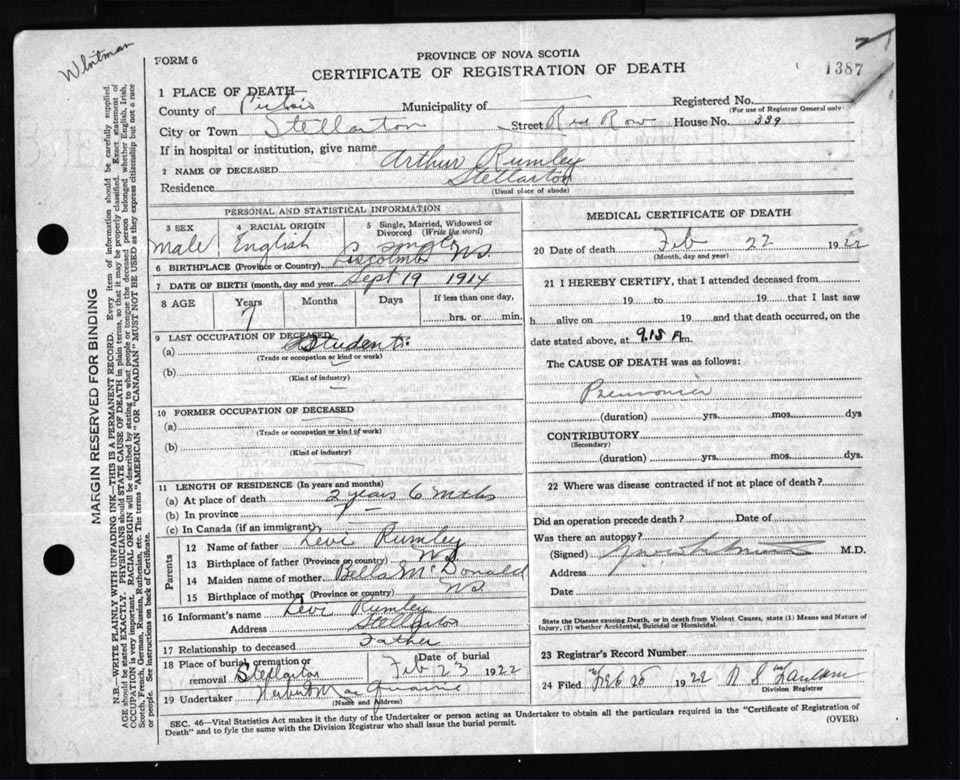 Whitman
FORM 6
PROVINCE OF NOVA SCOTIA
CERTIFICATE OF REGISTRATION OF DEATH
1387
1 PLACE OF DEATH—
County of Municipality of — Registered No.
(For use of Registrar General only)
City or Town Stellarton Street Red Row House No. 339
If in hospital or institution, give name
2 NAME OF DECEASED Arthur Rumley
Residence Stellarton
(Usual place of abode)
PERSONAL AND STATISTICAL INFORMATION
3 SEX Male
4 RACIAL ORIGIN English
5 Single, Married, Widowed or Divorced (Write the word) Single
6 BIRTHPLACE (Province or Country) Liscomb NS.
7 DATE OF BIRTH (month, day and year) Sept 19 1914
8 AGE Years 7 Months Days If less than one day, hrs. or min.
9 LAST OCCUPATION OF DECEASED
(a) Student.
(Trade or occupation or kind or work)
(b)
(Kind of industry)
10 FORMER OCCUPATION OF DECEASED
(a)
(Trade or occupation or kind of work)
(b)
(Kind of industry)
11 LENGTH OF RESIDENCE (In years and months)
(a) At place of death 2 years 6 mths
(b) In province 7 —
(c) In Canada (if an immigrant)
Parents
12 Name of father Levi Rumley
13 Birthplace of father (Province or country) NS
14 Maiden name of mother Bella McDonald
15 Birthplace of mother (Province or country) NS.
16 Informant's name Levi Rumley
Address Stellarton
17 Relationship to deceased Father
18 Place of burial cremation or removal Stellarton Date of burial Feb 23 1922
19 Undertaker
(Name and Address)
MEDICAL CERTIFICATE OF DEATH
20 Date of death Feb 22 1922
(Month, day and year)
21 I HEREBY CERTIFY, that I attended deceased from
19 to 19 that I last saw
h alive on 19 and that death occurred, on
date stated above, at 9.15 A m.
The CAUSE OF DEATH was as follows:
Pneumonia
(duration) yrs. mos. dys
CONTRIBUTORY
(Secondary)
(duration) yrs. mos. dys.
22 Where was disease contracted if not at place of death?
Did an operation precede death? Date of
Was there an autopsy?
(Signed) M.D.
Address
Date
State the Disease causing Death, or in death from Violent Causes, state (1) Means and Nature of
Injury, (2) whether Accidental, Suicidal or Homicidal.
23 Registrar's Record Number
24 Filed 1922
Division Registrar
SEC. 46—Vital Statistics Act makes it the duty of the Undertaker or person acting as Undertaker to obtain all the particulars required in the "Certificate of Registration of
Death" and to fyle the same with the Division Registrar who shall issue the burial permit.
(OVER)
MARGIN RESERVED FOR BINDING
N.B.—WRITE PLAINLY WITH UNFADING INK—THIS IS A PERMANENT RECORD. Every item of information should be carefully supplied.
AGE should be stated EXACTLY. PHYSICIANS should STATE CAUSE OF DEATH in plain terms, so that it may be properly classified. Exact statement of
OCCUPATION is very important. RACIAL ORIGIN will be described by stating to what people or tongue the deceased person belonged whether English, Irish,
Scotch, French, German, Russian, Ruthenian, etc. The terms "AMERICAN" OR "CANADIAN" MUST NOT BE USED as they express citizenship but not a race
or people. See instructions on back of Certificate.